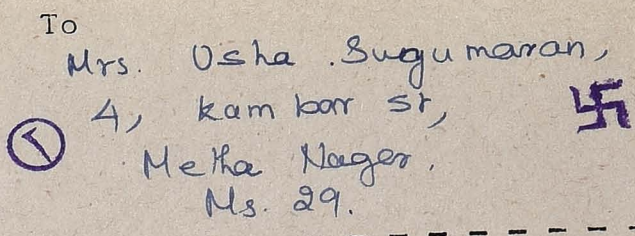 To
Mrs. Usha Sugumaran,
4, kambar st,
Metha Nager.
Ms. 29.